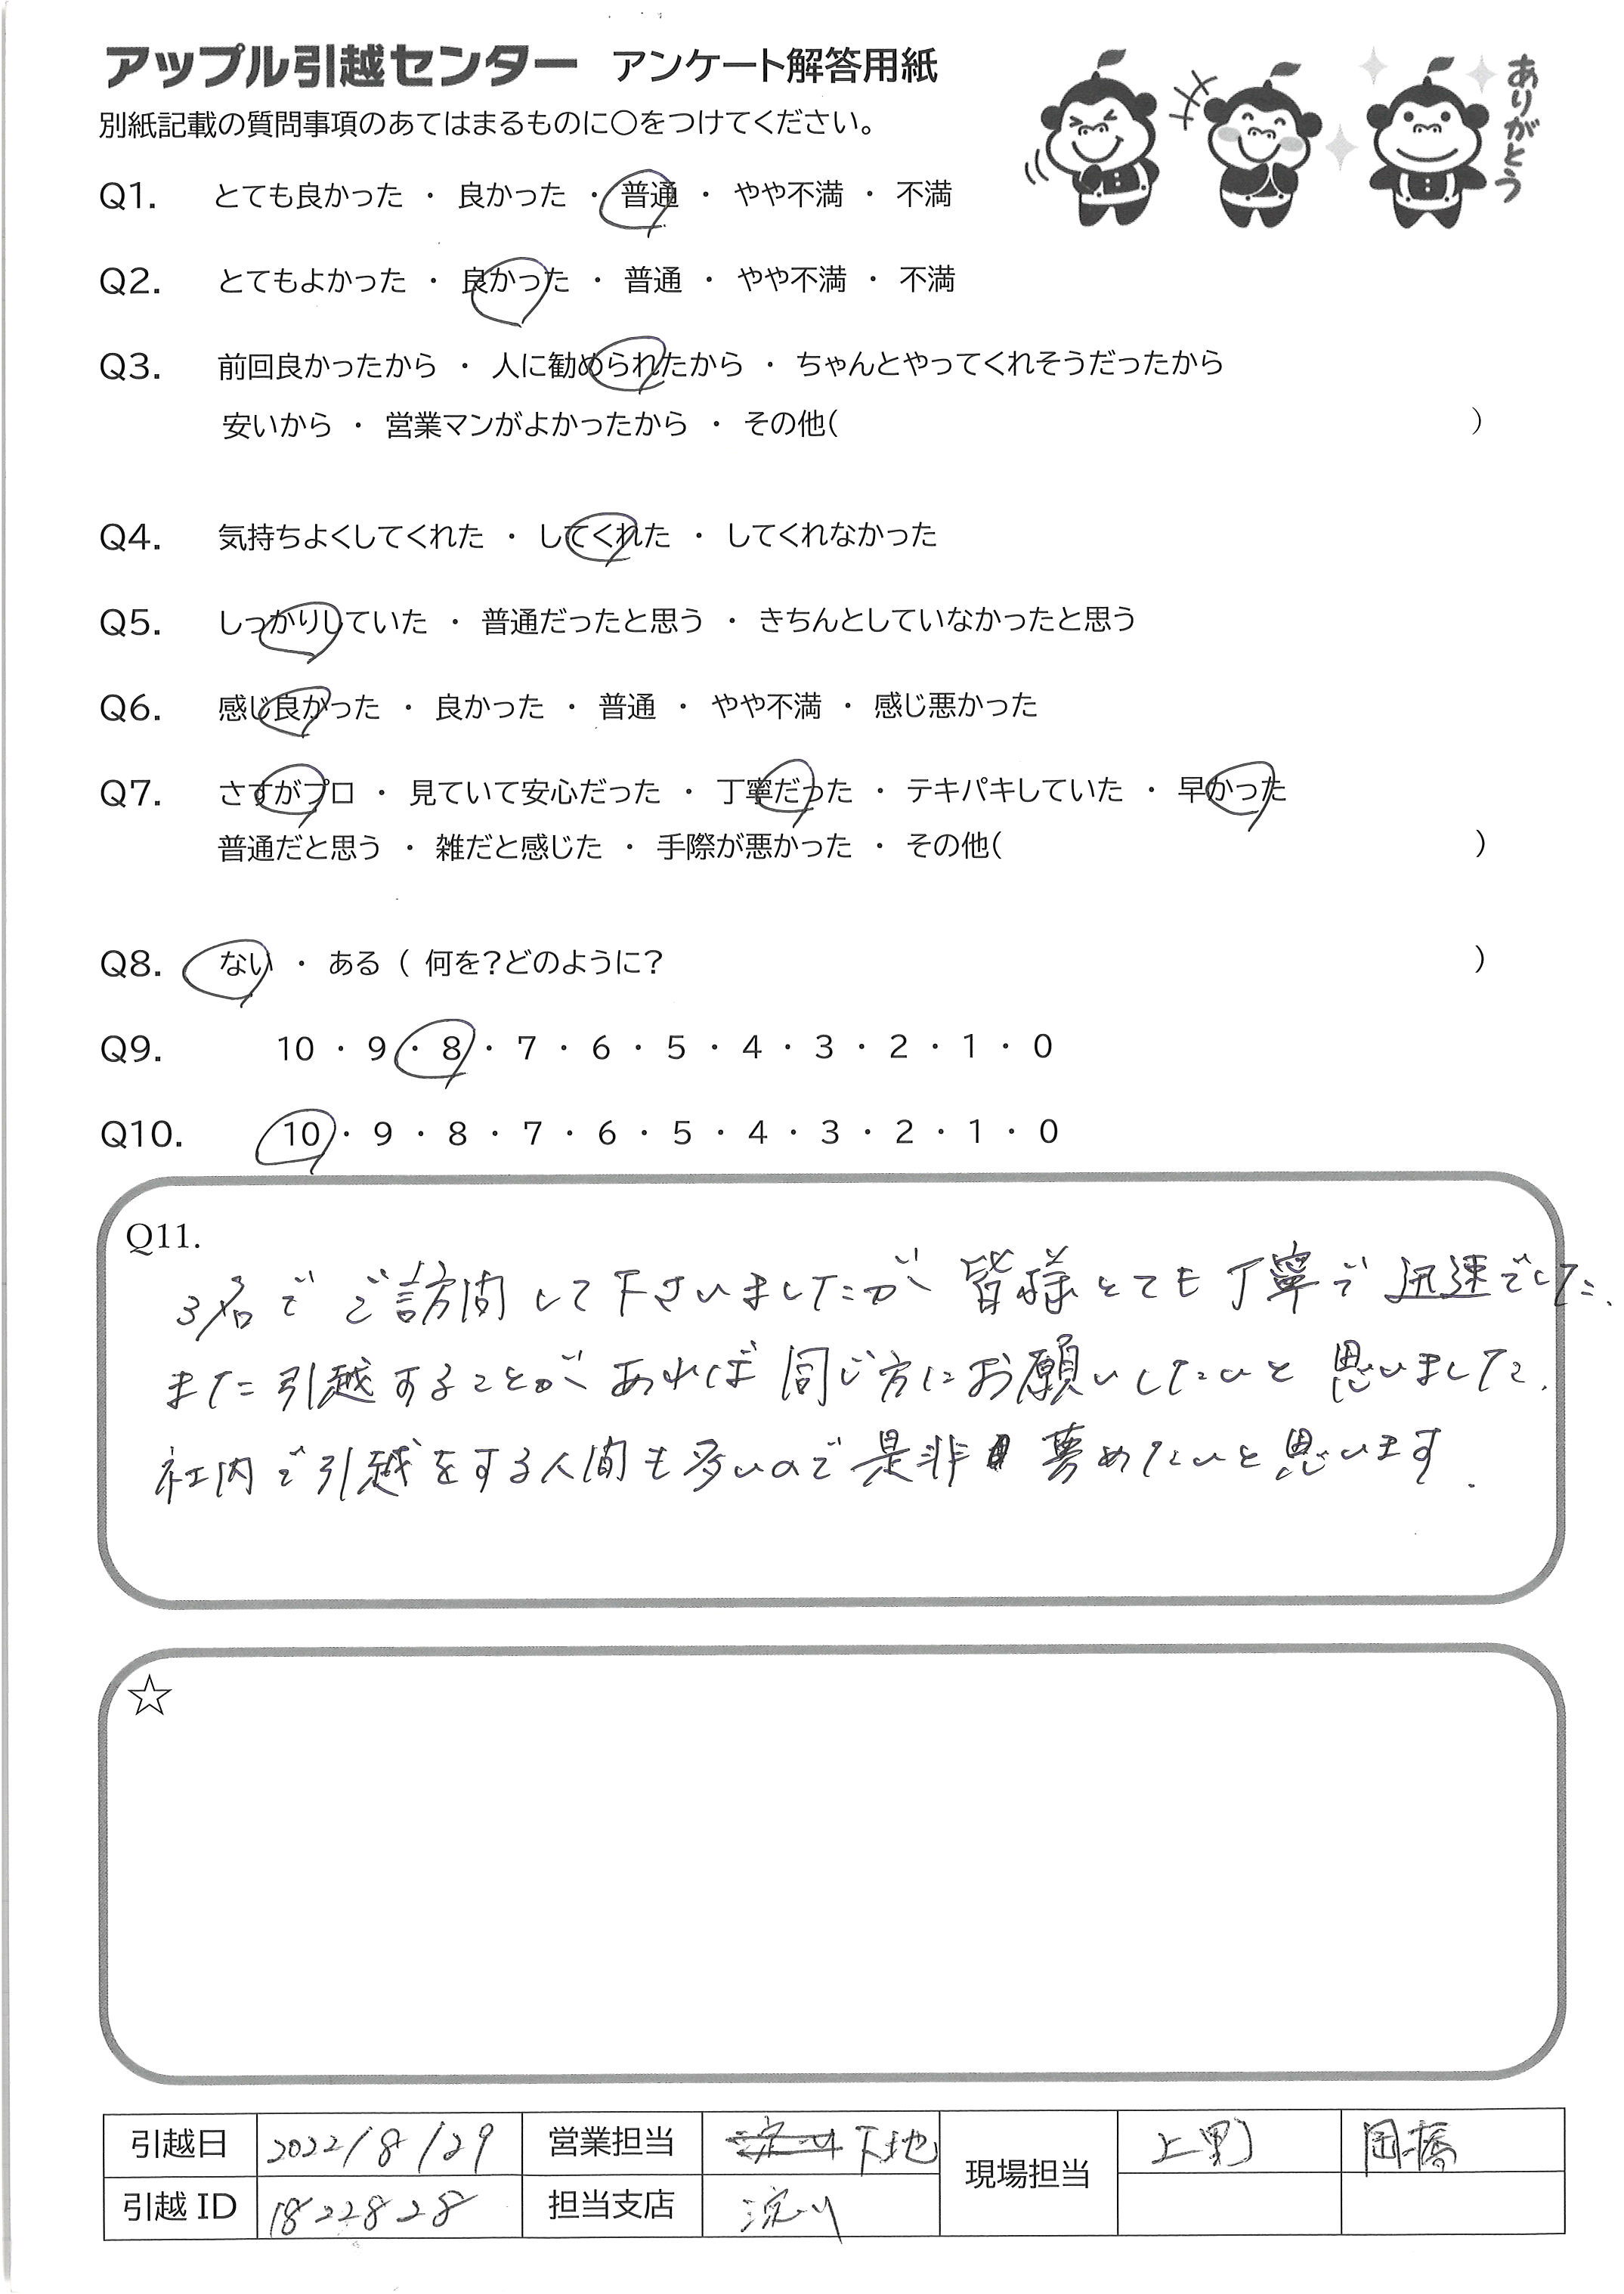 アップル引越センター アンケート解答用紙
ありがとう
別紙記載の質問事項のあてはまるものに○をつけてください。
Q1. とても良かった ・ 良かった ・ 普通 ・ やや不満 ・ 不満
Q2. とてもよかった ・ 良かった ・ 普通 ・ やや不満 ・ 不満
Q3. 前回良かったから ・ 人に勧められたから ・ ちゃんとやってくれそうだったから
安いから ・ 営業マンがよかったから ・ その他( )
Q4. 気持ちよくしてくれた ・ してくれた ・ してくれなかった
Q5. しっかりしていた ・ 普通だったと思う ・ きちんとしていなかったと思う
Q6. 感じ良かった ・ 良かった ・ 普通 ・ やや不満 ・ 感じ悪かった
Q7. さすがプロ ・ 見ていて安心だった ・ 丁寧だった ・ テキパキしていた ・ 早かった
普通だと思う ・ 雑だと感じた ・ 手際が悪かった ・ その他( )
Q8. ない ・ ある ( 何を?どのように? )
Q9. 10 ・ 9 ・ 8 ・ 7 ・ 6 ・ 5 ・ 4 ・ 3 ・ 2 ・ 1 ・ 0
Q10. 10 ・ 9 ・ 8 ・ 7 ・ 6 ・ 5 ・ 4 ・ 3 ・ 2 ・ 1 ・ 0
Q11.
3名でご訪問して下さいましたが皆様とても丁寧で迅速でした.
また引越することがあれば同じ方にお願いしたいと思いました.
社内で引越をする人間も多いので是非 めたいと思います.
☆
引越日 2022/8/29 営業担当 下地 現場担当 上野 岡橋
引越ID 1822828 担当支店 淀川